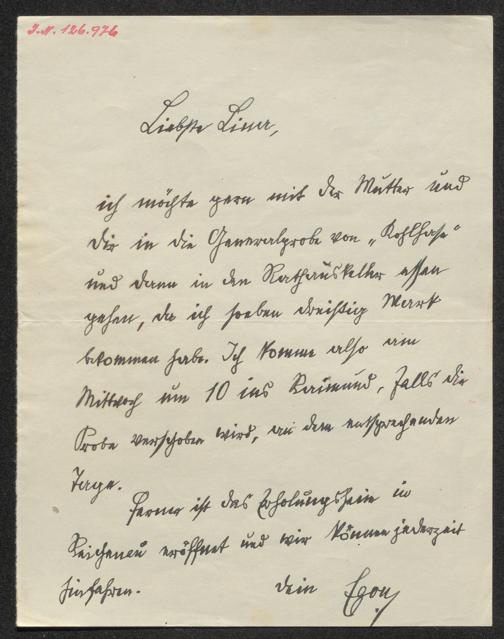 I.N. 126.976
Liebste Lina,
ich möchte gern mit der Mutter und
Dir in die Generalprobe von „Kohlhase"
und dann in den Rathauskeller essen
gehen, da ich soeben dreißig Mark
bekommen habe. Ich komme also am
Mittwoch um 10 ins Raimund, falls die
Probe verschoben wird, an dem entsprechenden
Tage.
Ferner ist das Erholungsheim in
Reichenau eröffnet und wir können jederzeit
hinfahren.
Dein Egon